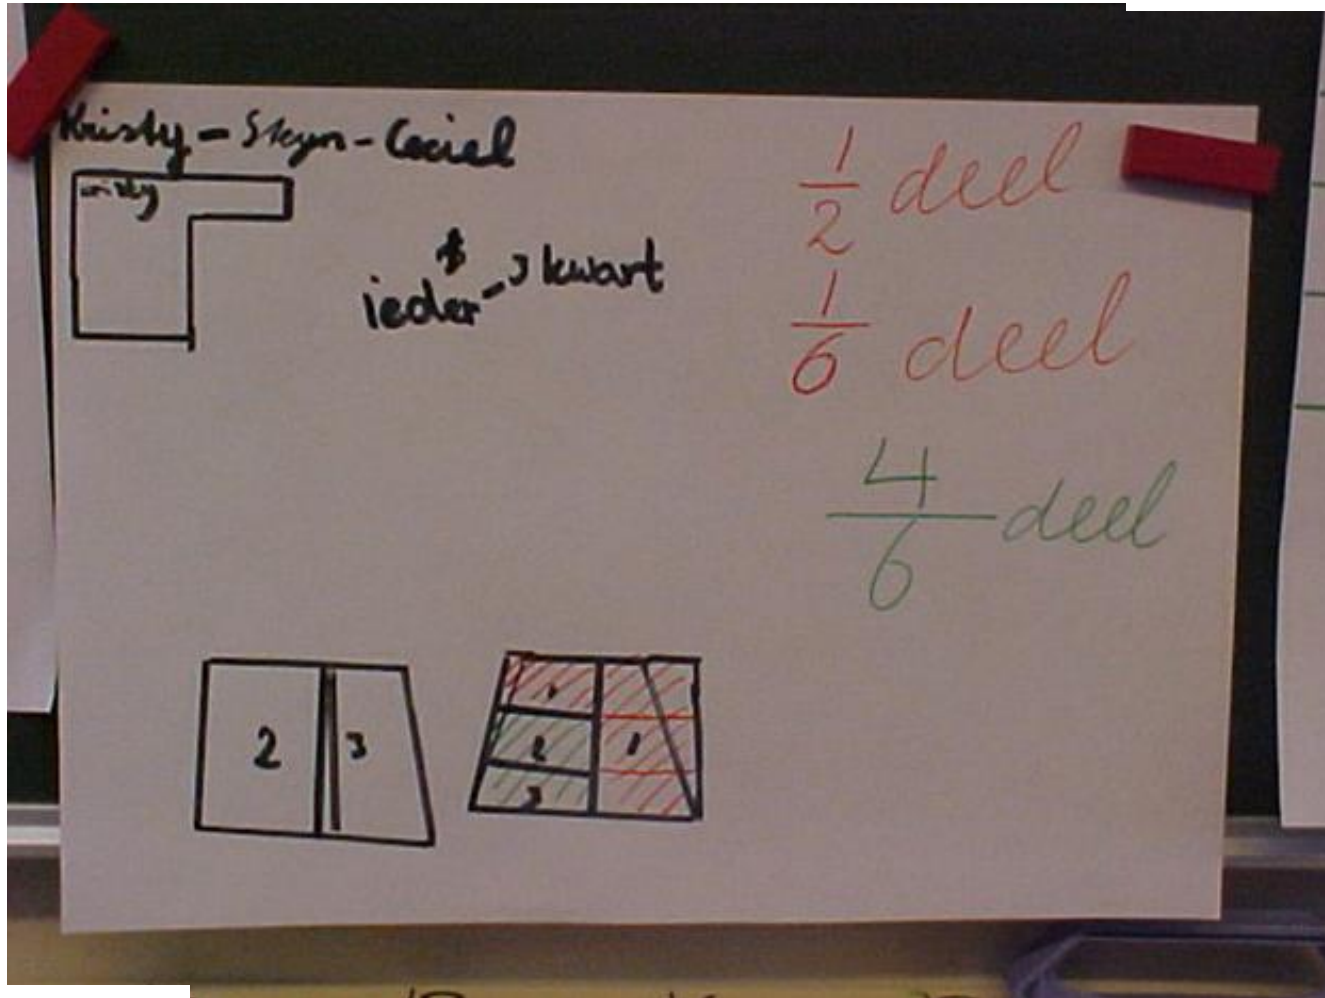 Kristy - Stijn - Ceciel
risty
ieder - 3 kwart
1/2 deel
1/6 deel
4/6 deel
2 3
1 1
2
3